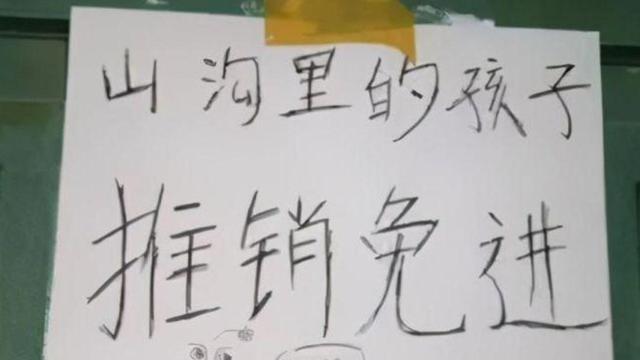 山沟里的孩子
推销免进